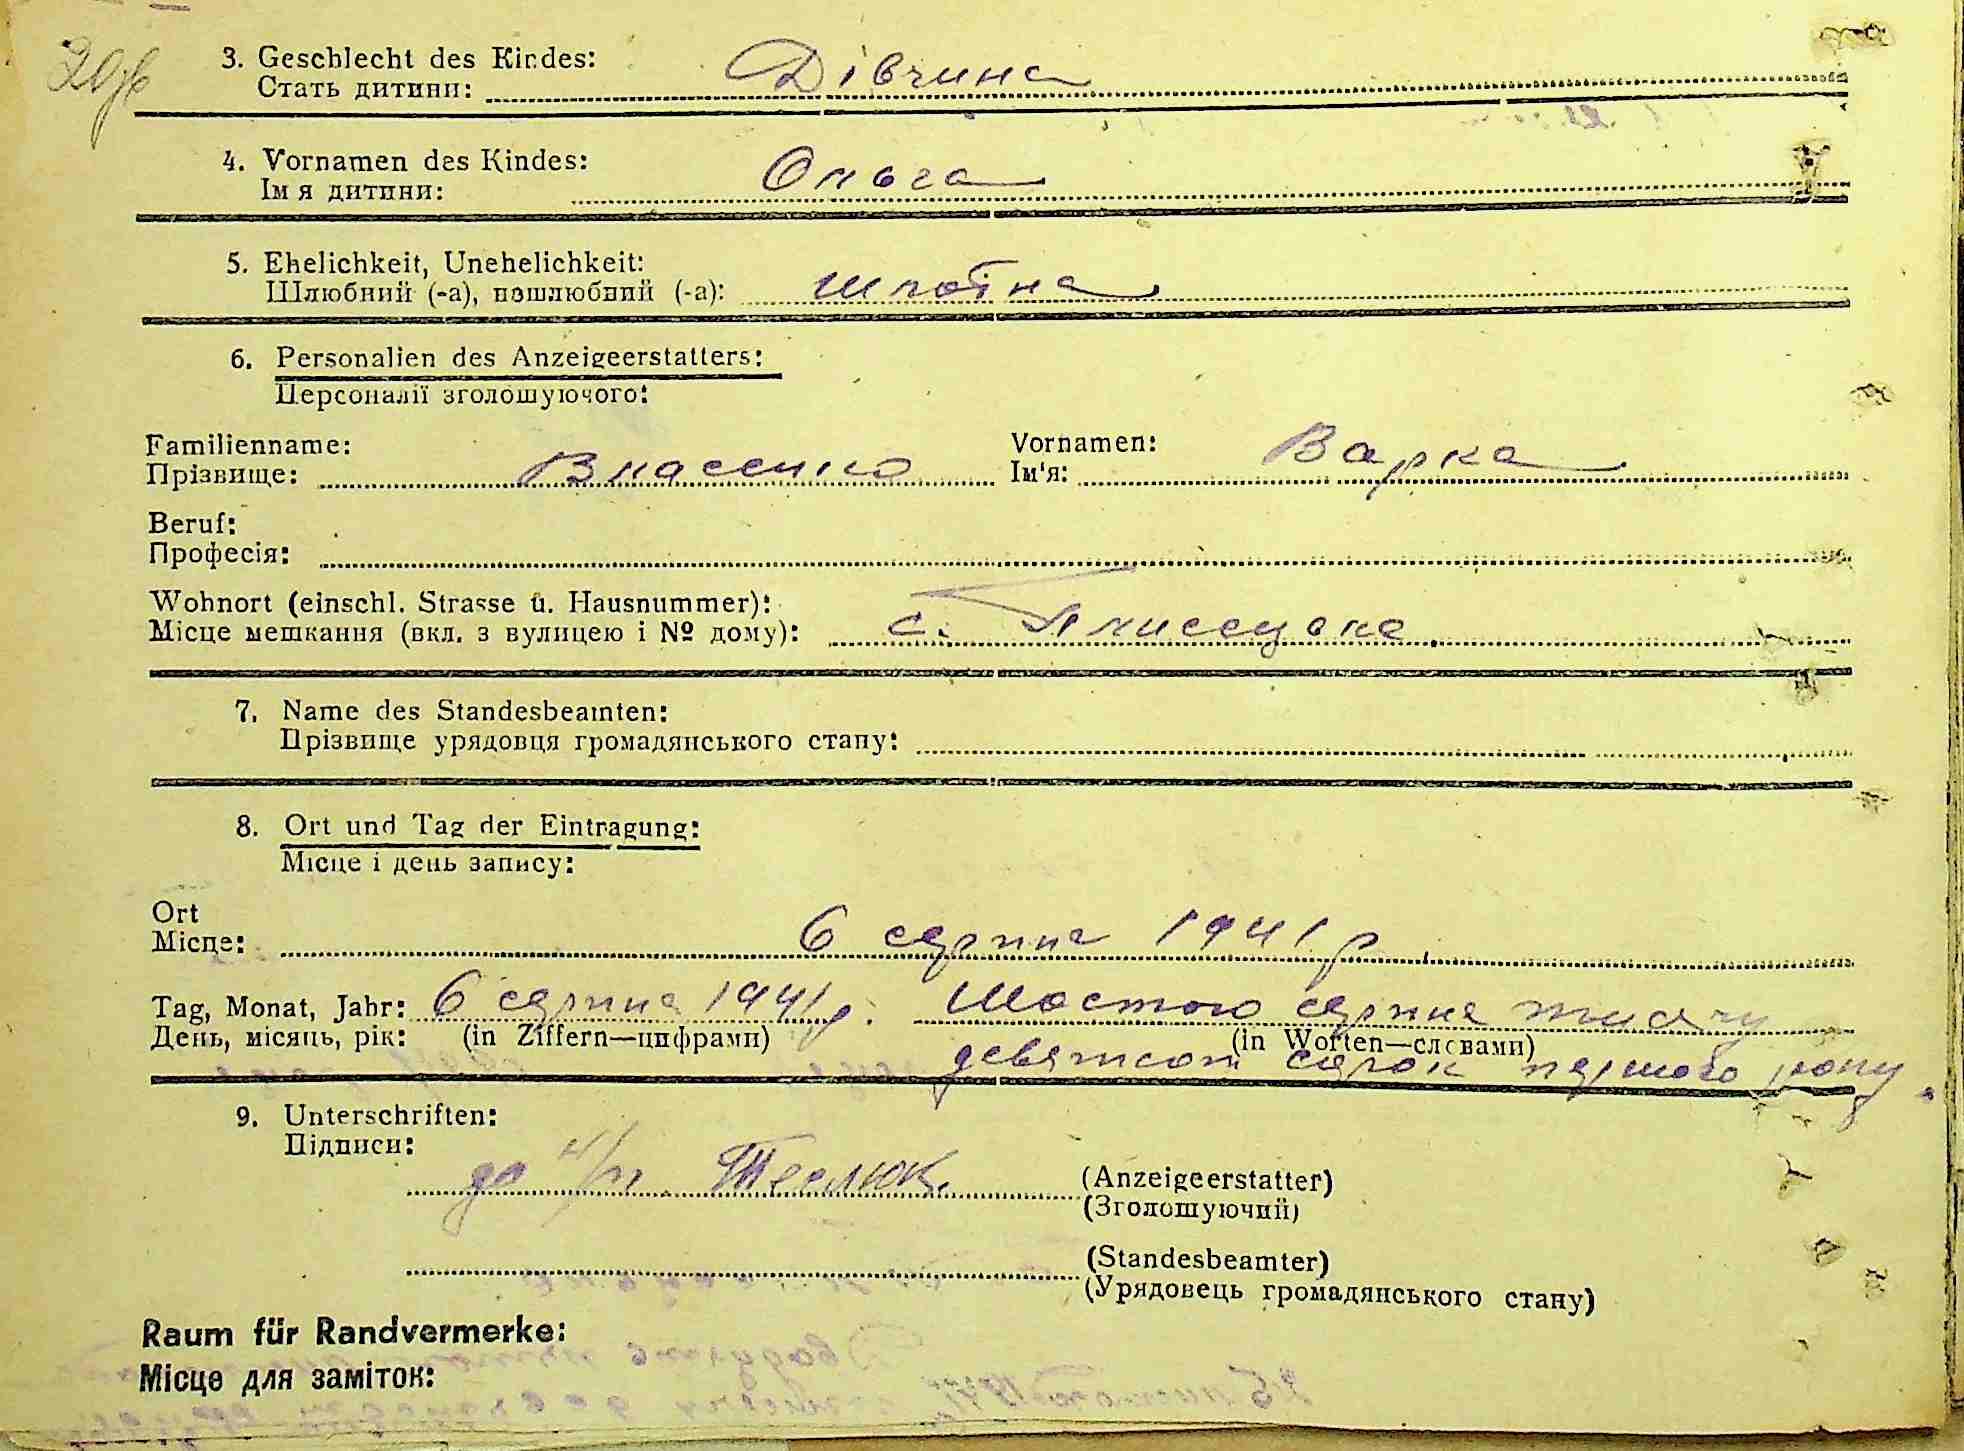 3. Geschlecht des Kindes:
Стать дитини: Дівчина
4. Vornamen des Kindes:
Імя дитини: Ольга
5. Ehelichkeit, Unehelichkeit:
Шлюбний (-а), пошлюбний (-а): шлюбна
6. Personalien des Anzeigeerstatters:
Персоналії зголошуючого:
Familienname: Vornamen:
Прізвище: Власенко Ім'я: Варка
Beruf:
Професія:
Wohnort (einschl. Strasse u. Hausnummer):
Місце мешкання (вкл. з вулицею і № дому): с. Плисецьке
7. Name des Standesbeamten:
Прізвище урядовця громадянського стану:
8. Ort und Tag der Eintragung:
Місце і день запису:
Ort
Місце: 6 серпня 1941 р.
Tag, Monat, Jahr: 6 серпня 1941 р. Шостого серпня тисячу
День, місяць, рік: (in Ziffern—цифрами) (in Worten—словами)
девятсот сорок першого року.
9. Unterschriften:
Підписи:
Теслюк. (Anzeigeerstatter)
(Зголошуючий)
(Standesbeamter)
(Урядовець громадянського стану)
Raum für Randvermerke:
Місце для заміток: